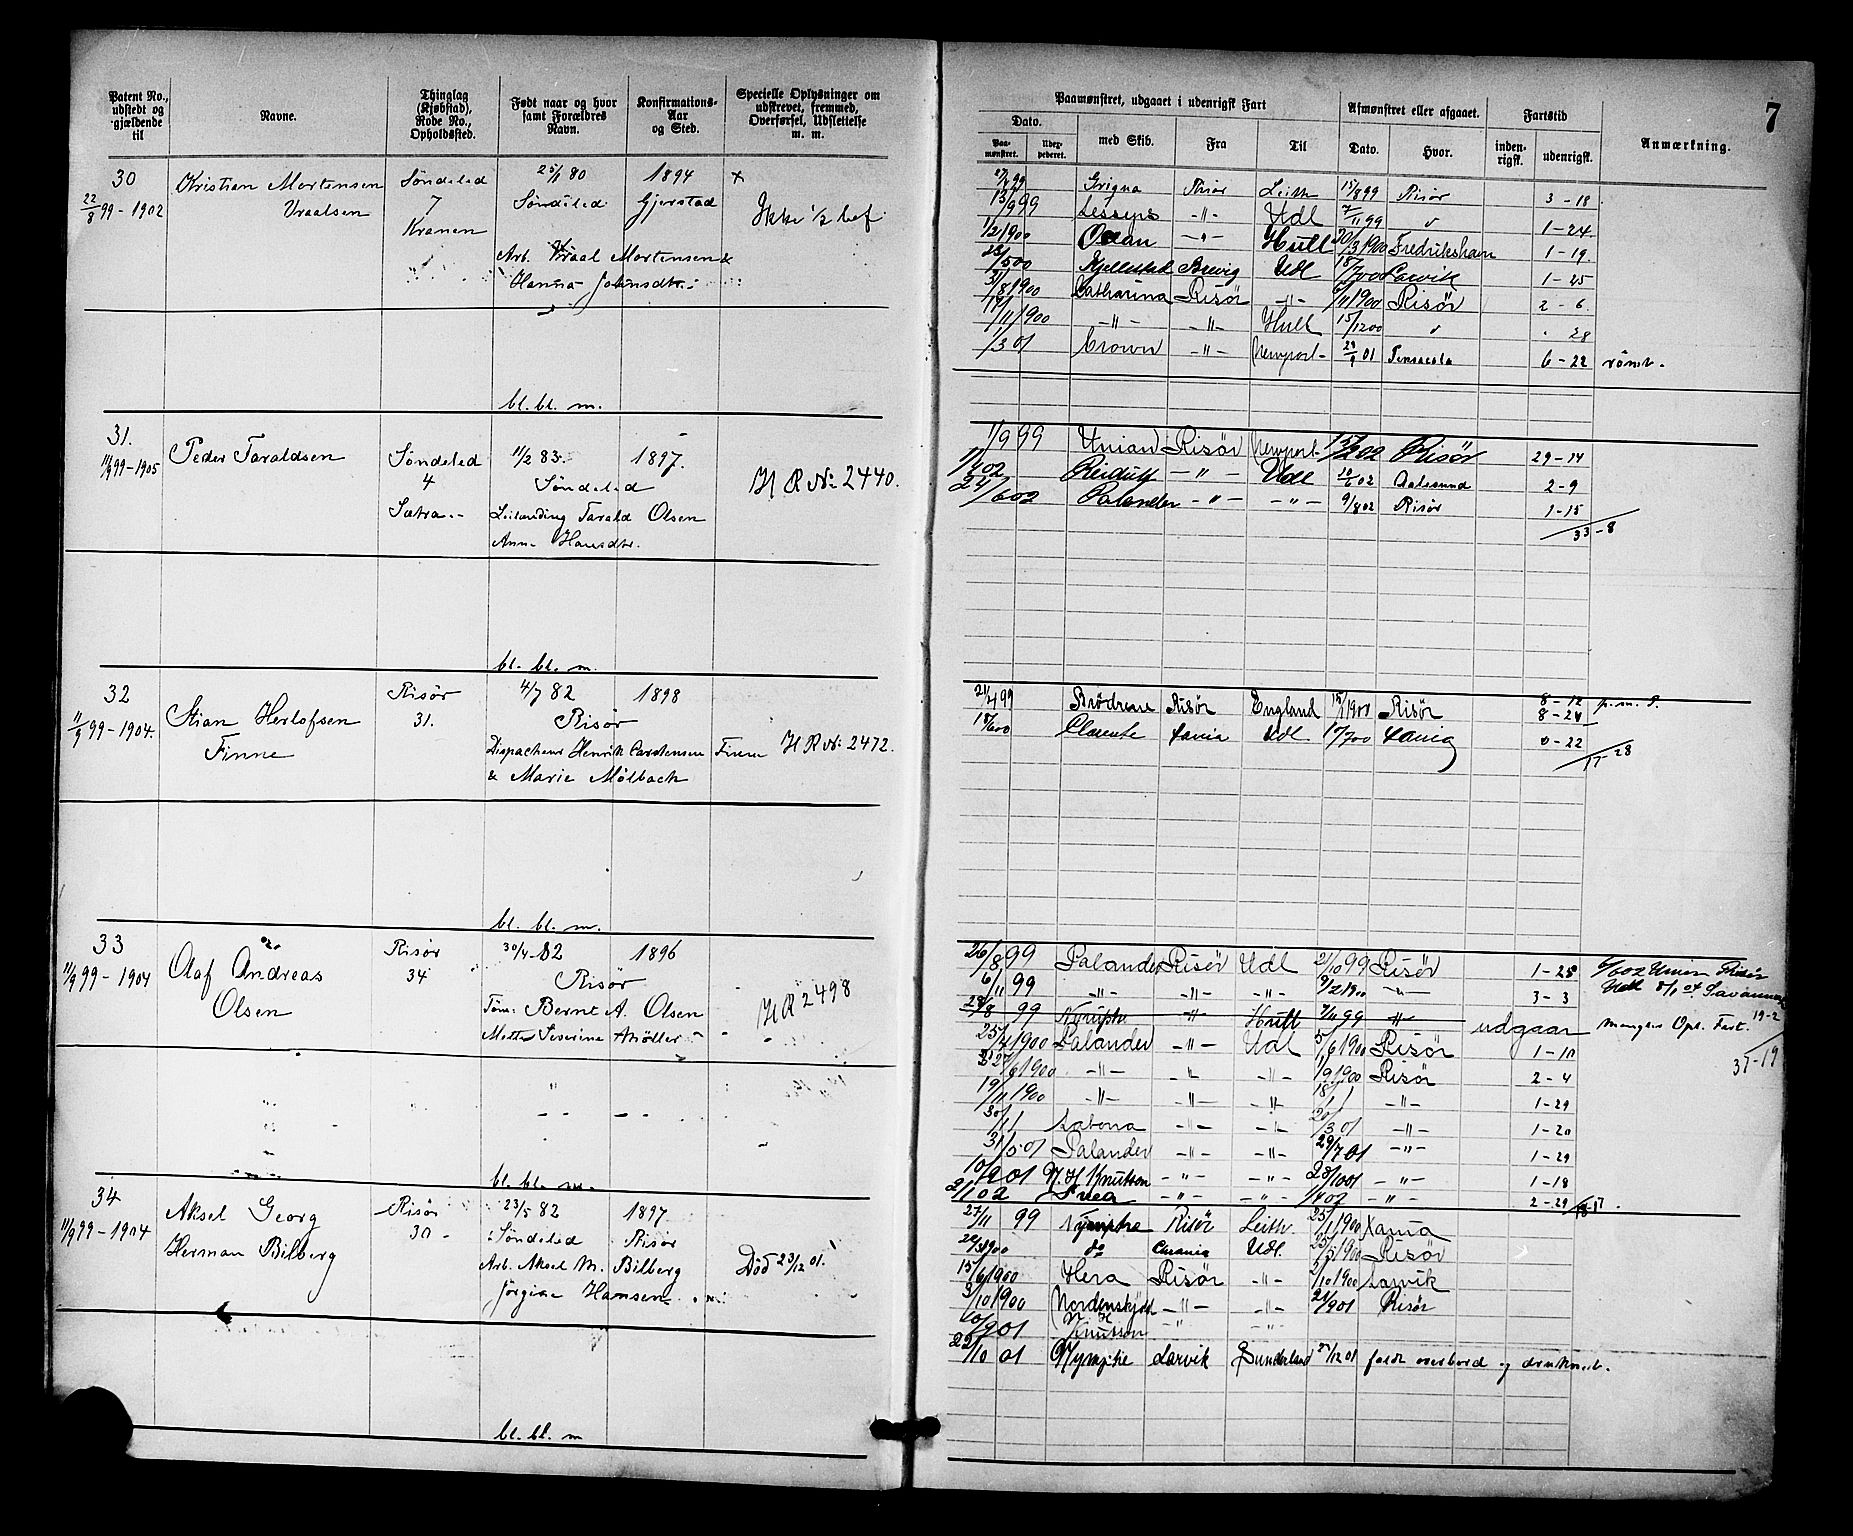 7
Patent No., udstedt og gjældende til
Navne.
Thinglag (Kjøbstad), Rode No., Opholdssted.
Født naar og hvor samt Forældres Navn.
Konfirmations-Aar og Sted.
Specielle Oplysninger om udskrevet, fremmed, Overførsel, Udslettelse m. m.
Paamønstret, udgaaet i udenrigsk Fart
Afmønstret eller afgaaet.
Fartstid
Anmærkning.
Dato.
med Skib.
Fra
Til
Dato.
Hvor.
inden-rigsk.
udenrigsk.
Paa-mønstret.
30
22/8 99-1902
Kristian Mortensen
Vraalsen
Søndeled
7
Kranen
25/1 80
Søndeled
1894
Gjerstad
Arb. Vraal Mortensen &
Hanna Johnsdtr.
+
Ikke 1/2 bef
bl. bl. m.
99 Grigna Risør Leith 15/8 99 Risør 3-18
13/9 99 Lesseps -"- Udl 7/11 99 d 1-24
1/2 1900 Ocean -"- Hull 20/3 1900 Fredrikshavn 1-19
/5 00 Kjellestad Brevig Udl 18/7 00 Larvik 1-25
31/8 1900 Catharina Risør -"- 6/11 1900 Risør 2-6
/11 1900 -"- -"- Hull 15/12 00 d 28
1/3 01 Crown -"- Newport 01 Pensacola 6-22 rømt.
31.
11/9 99-1905
Peder Taraldsen
Søndeled
4
Sætra
11/2 83.
Søndeled
1897.
Leilænding Tarald Olsen
Anne Hansdtr.
H R No 2440.
bl. bl. m.
1/9 99 Union Risør Newport 15/2 02 Risør 29-14
1/4 02 -"- Udl 10/6 02 Aalesund 2-9
24/6 02 Palander -"- -"- 9/8 02 Risør 1-15
33-8
32
11/9 99-1904.
Stian Herlofsen
Finne
Risør
31.
4/7 82
Risør
1898
Dispacheur Henrik Carstensen Finne
& Marie Mølbach
H R No 2472.
bl. bl. m.
21/4 99 Brødrene Risør England 15/1 1900 Risør 8-12 p. m. P.
8-24
/6 00 Clarente Udl. 17/7 00 0-22
28
33
11/9 99-1904
Olaf Andreas
Olsen
Risør
34
30/4 82
Risør
1896
Tøm. Bernt A. Olsen
Mette Severine Møller
H R 2498
bl. bl. m.
26/8 99 Palander Risør Udl 2/10 99 Risør 1-25 6/6 02 Union Risør
6/11 99 -"- -"- -"- 9/2 1900 -"- 3-3 Udl Savannah
28/8 99 Nymphe -"- Hull 7/11 99 -"- udgaar mangler Opl. Fart. 19-2
25/4 1900 Palander -"- Udl 5/6 1900 Risør 1-10
37-19
/6 1900 -"- -"- -"- 1/9 1900 Risør 2-4
19/11 1900 -"- -"- -"- 18/1 -"- 1-29
30/1 1 Latona -"- -"- 20/3 01 -"- 1-20
31/5 01 Palander -"- -"- 29/7 01 -"- 1-29
10/9 01 N. H. Knutson -"- -"- 28/10 01 -"- 1-18
2/1 02 Svea -"- -"- 1/4 02 -"- 2-29
34
11/9 99-1904
Aksel Georg
Herman Bilberg
Risør
30
23/5 82
Søndeled
1897
Risør
Arb. Aksel M. Bilberg
Jørgine Hansen
Død 23/12 01.
bl. bl. m
27/11 99 Nymphe Risør Leith 25/1 1900
20/3 1900 do Udl. 25/5 1900 Risør
15/6 1900 Hera Risør -"- 2/10 1900 Larvik
3/10 1900 Nordenskjold -"- -"- 21/9 01 Risør
10/9 01 N. H. Knutson -"- -"-
22/10 01 Nymphe Larvik Sunderland 23/12 01 faldt overbord og druknede.